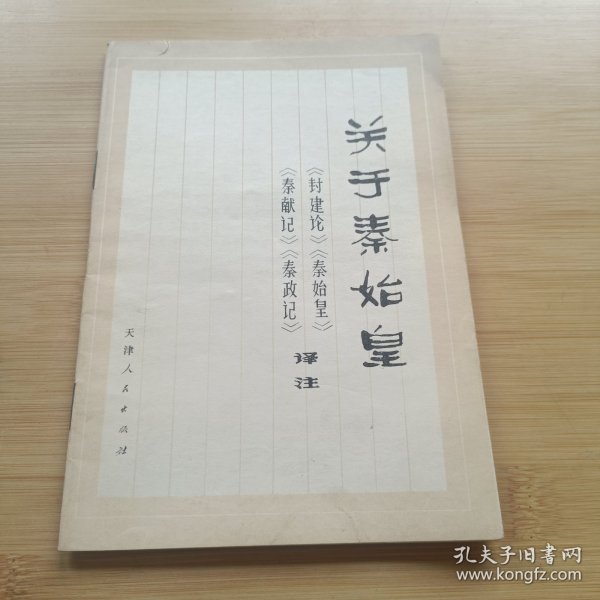 关于秦始皇
《封建论》《秦始皇》
《秦献记》《秦政记》
译注
天津人民出版社
孔夫子旧书网
www.kongfz.com